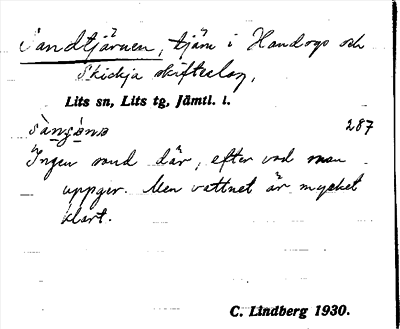 Sandtjärnen, tjärn i Handogs och
Skickja skifteslag,
Lits sn, Lits tg, Jämtl. l.
287
Ingen sand där, efter vad man
uppger. Men vattnet är mycket
klart.
C. Lindberg 1930.